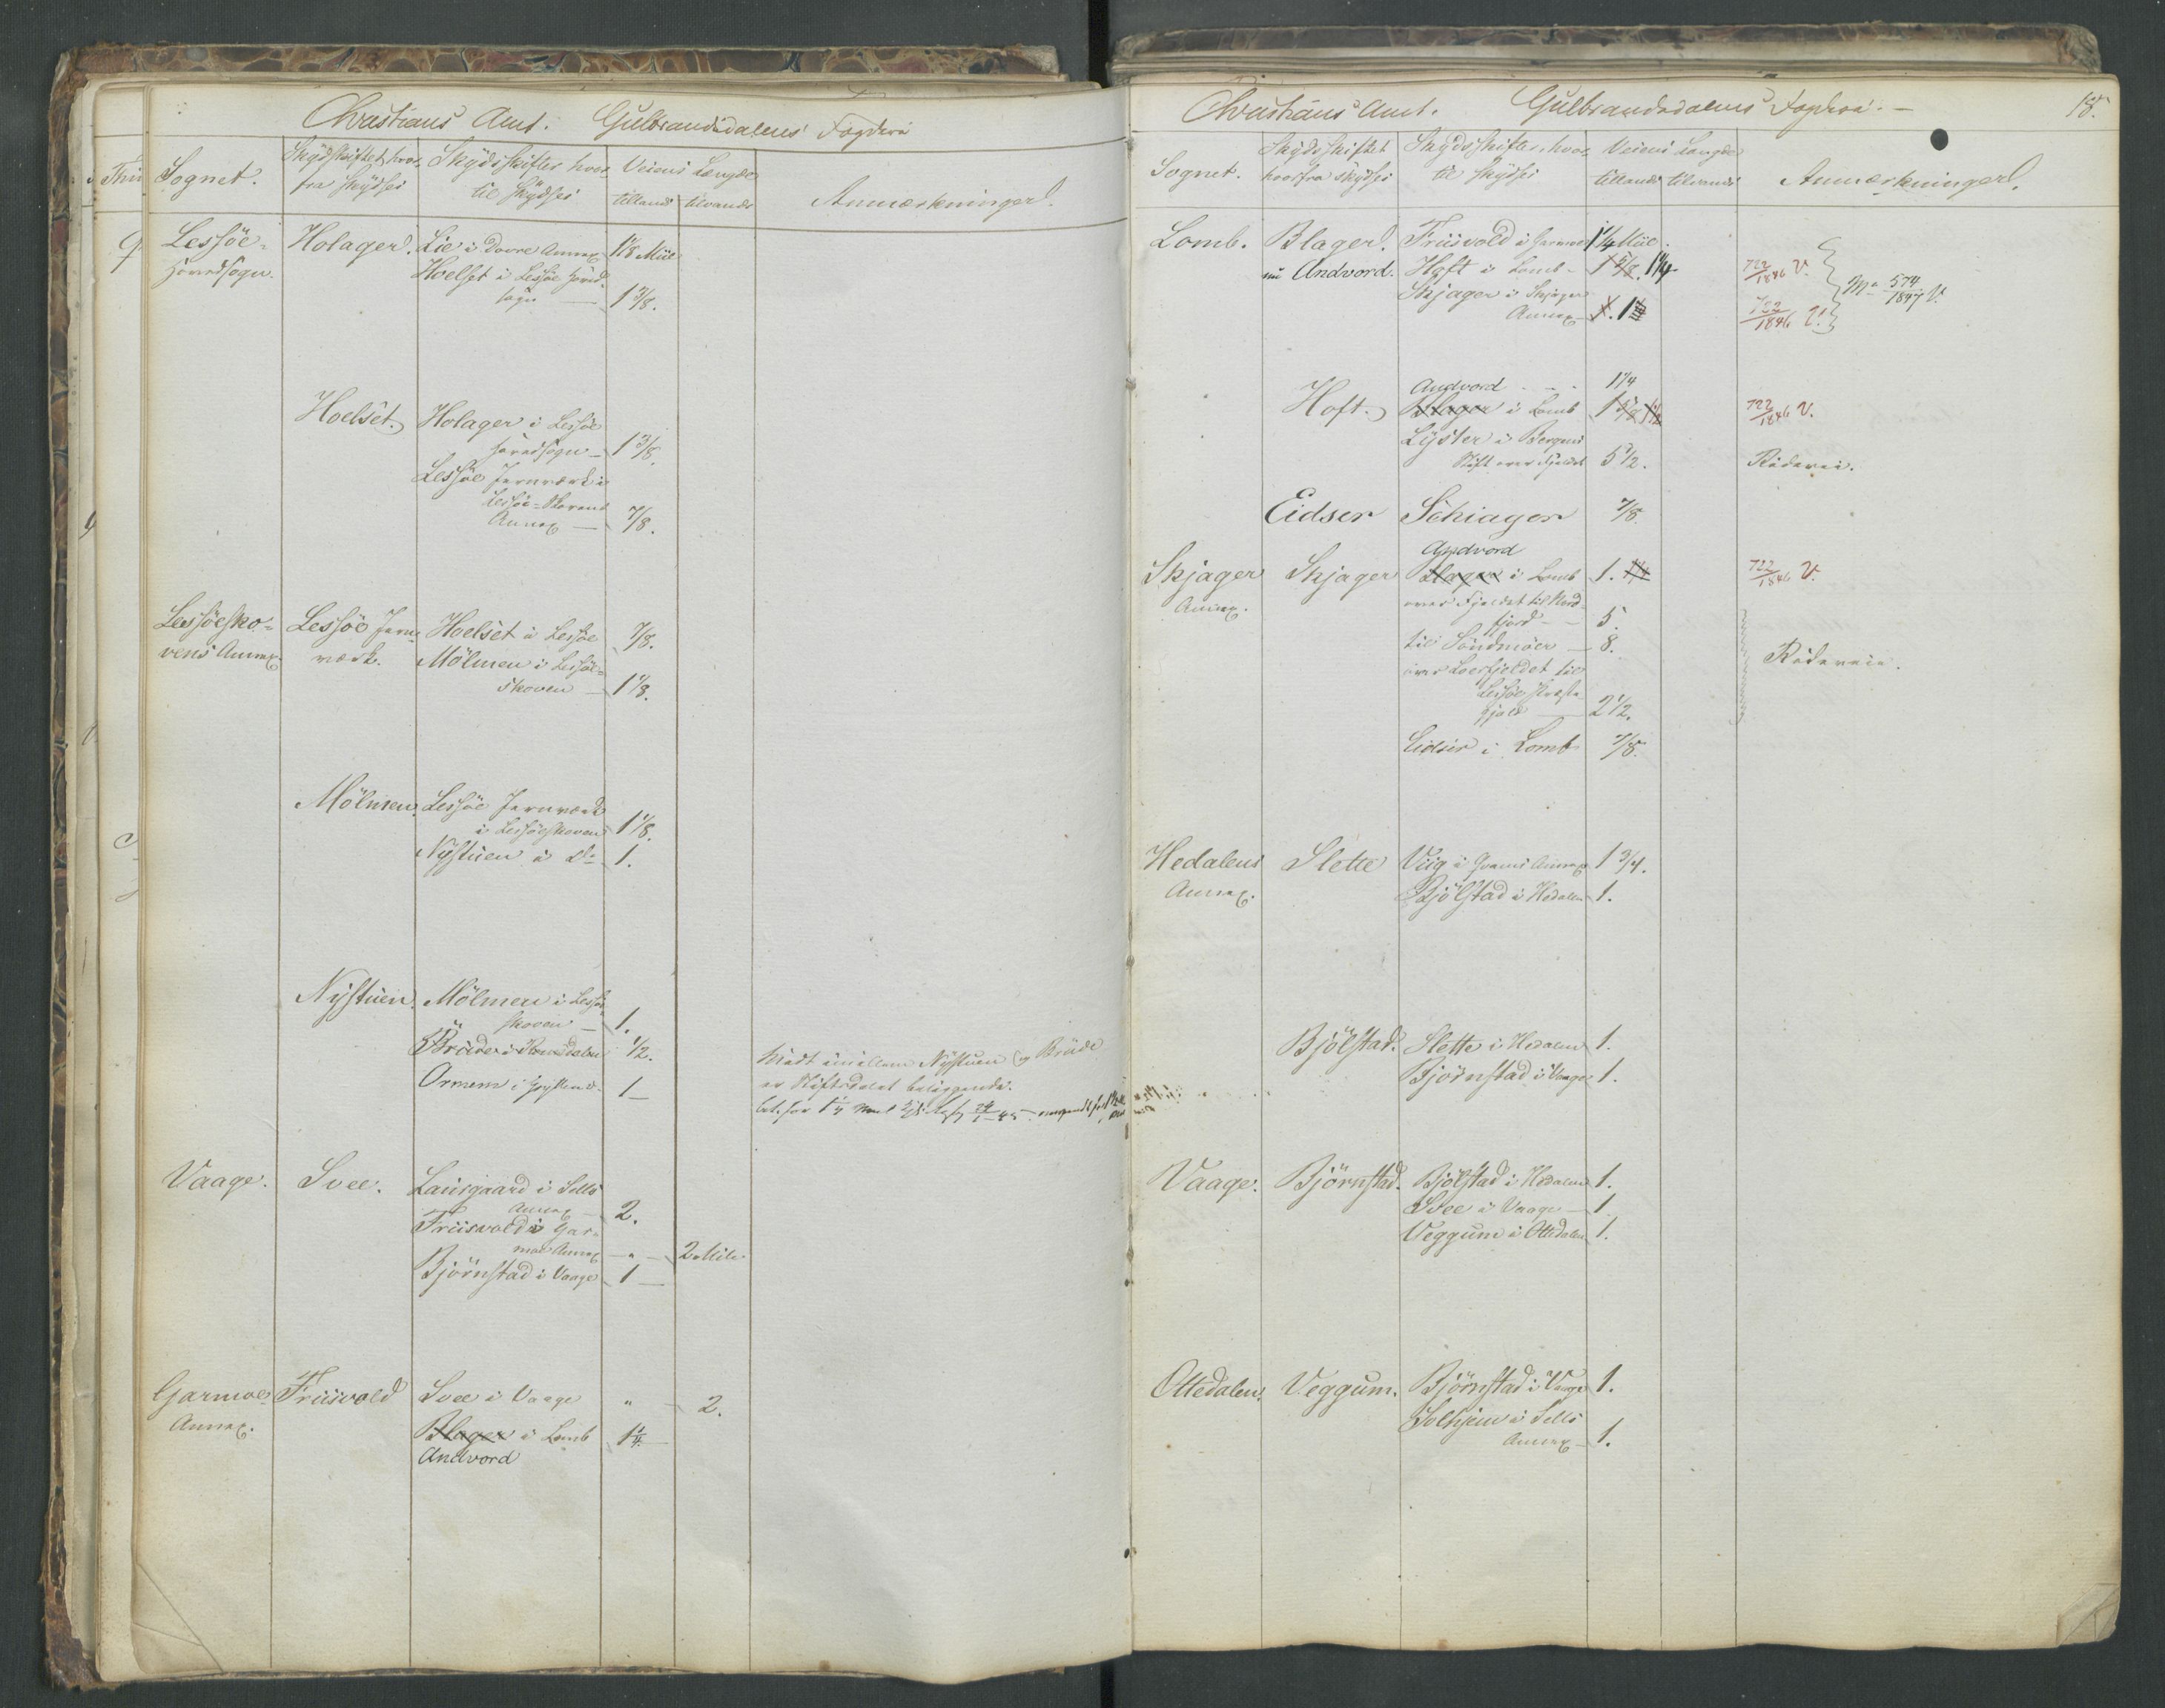 Christians Amt. Gulbrandsdalens Fogderie
Sognet.
Skydsskiftet, hvor-
fra skydses
Skydsskifter hvor-
til skydses
Veiens Længde
tillands tilvands
Anmærkninger.
Lessöe-
Hovedsogn.
Holager.
Lie i Dovre Annex 1 1/8 Miil
Hoelset i Lessöe Hoved-
sogn — 1 3/8.
Hoelset.
Holager i Lessöe
Hovedsogn — 1 3/8.
Lessöe Jernværk i
Lessöe-Skovens
Annex — 7/8.
Lessöesko-
vens Annex.
Lessöe Jern-
værk.
Hoelset i Lessöe 7/8.
Mölmen i Lessöe-
skoven — 1 1/8.
Mölmen.
Lessöe Jernværk
i Lessöeskoven 1 1/8.
Nystuen i do 1.
Nystuen.
Mölmen i Lessöe-
skoven — 1.
Brude i Romsdalen 1/2.
Ormem i 1 —
Midt imellem Nystuen og Brude
er Stiftsdelet beliggende.
Vaage.
Svee.
Laurgaard i Sells
Annex — 2.
Friisvold i Gar-
moe Annex — " — 2 Mile
Björnstad i Vaage 1 —
Garmoe
Annex.
Friisvold
Svee i Vaage " — 2.
Blager i Lomb 1 1/4 —
Andvord
Christians Amt. Gulbrandsdalens Fogderie. —
18.
Sognet.
Skydsskiftet
hvorfra skydses
Skydsskifter, hvor-
til skydses
Veiens Længde
tillands tilvands
Anmærkninger.
Lomb.
Blager.
nu Andvord.
Friisvold i Garmoe 1 1/4 Miil.
Hoft i Lomb — 1 5/8. 1 1/4 722/1846 V.
Skjager i Skjager
Annex — 1. 1 1/4 722/1846 V.
574/1847 V.
Hoft.
Andvord - - - 1 1/4
Blager i Lomb 1 5/8 1 1/2 722/1846 V.
Lyster i Bergens
Stift over Fjeldet 5 1/2. Rideveie.
Eidser Schiager 7/8.
Skjager
Annex.
Skjager
Andvord
Blager i Lomb 1. 1 1/4 722/1846 V.
over Fjeldet til Nord-
fjord - - 5.
til Söndmöer — 8.
over Loerfjeldet til
Lessöe Præste-
gjeld — 2 1/2.
Rideveie.
Eidser i Lomb 7/8.
Hedalens
Annex.
Slette
Viig i Qvams Annex 1 3/4.
Bjölstad i Hedalen 1.
Bjölstad.
Slette i Hedalen 1.
Björnstad i Vaage 1.
Vaage.
Björnstad.
Bjölstad i Hedalen 1.
Svee i Vaage — 1
Veggum i Ottedalen 1.
Ottedalen.
Veggum.
Björnstad i Vaage 1.
Solhjem i Sells
Annex — 1.